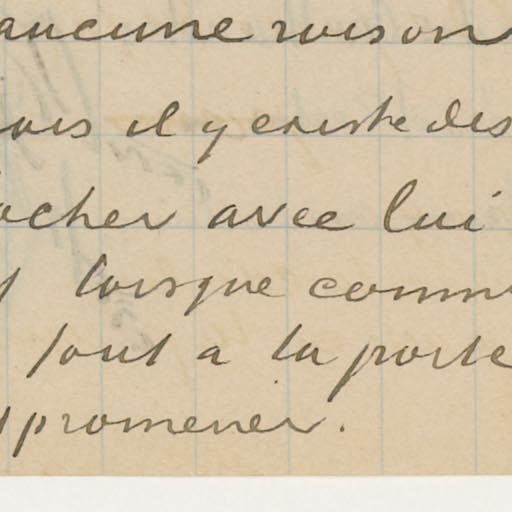 aucune raison
ais il y existe des
ocher avec lui
lorsque comm
tout a la porte
promener.